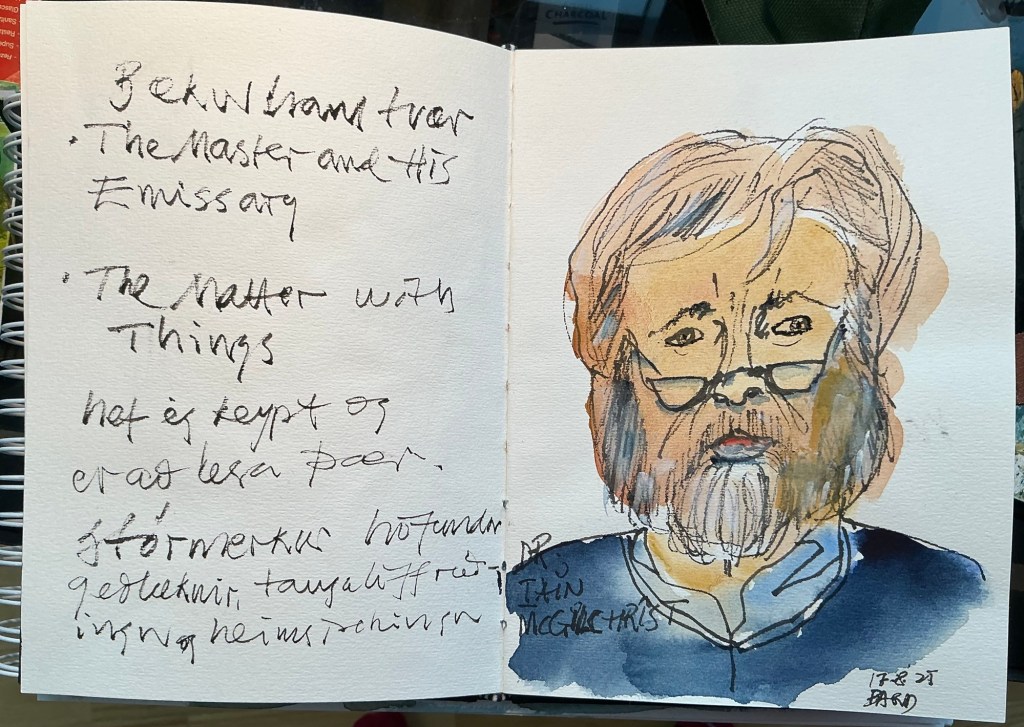 Bækur hans tvær
• The Master and His
Emissary
• The Matter with
Things
hef ég keypt og
er að lesa þær.
Stórmerkur höfundur
geðlæknir, taugalíffræð-
ingur og heimspekingur
DR.
IAIN
McGILCHRIST
17.8.'25
CHARCOAL